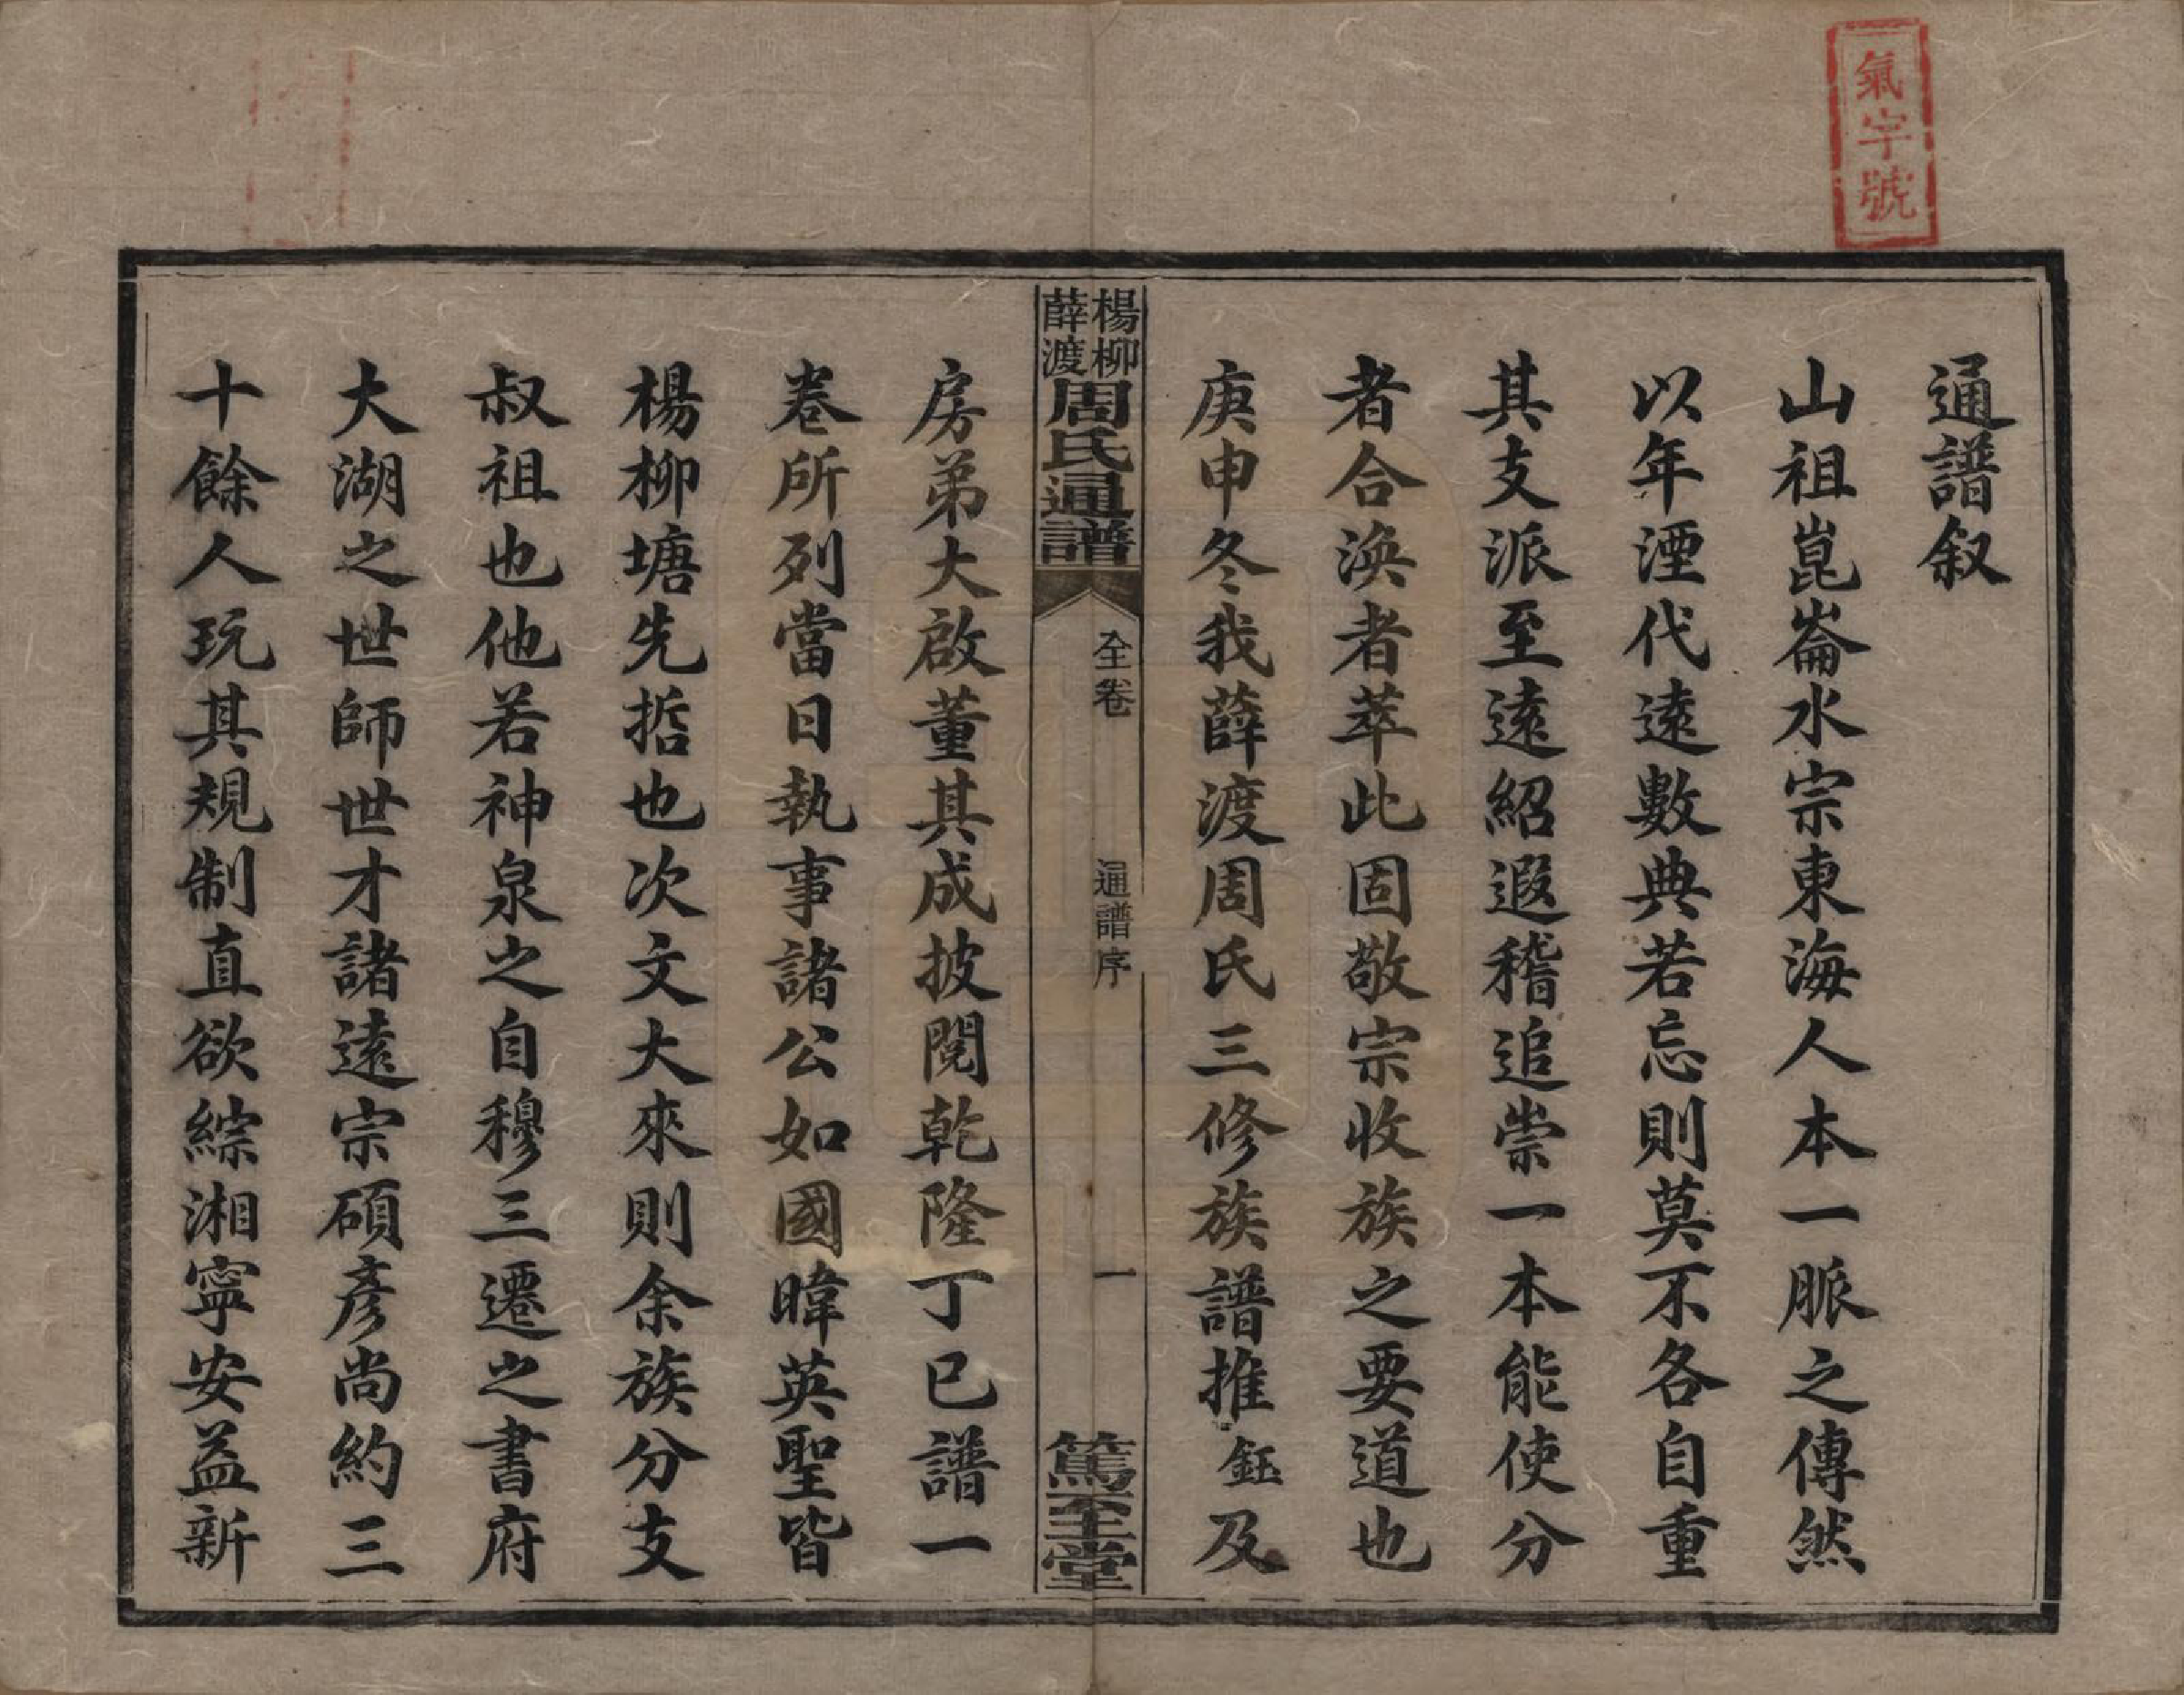 氣字號
通譜叙
山祖崑崙水宗東海人本一脈之傳然
以年湮代遠數典若忘則莫不各自重
其支派至遠紹遐稽追崇一本能使分
者合渙者萃此固敬宗收族之要道也
庚申冬我薛渡周氏三修族譜推鈺及
楊柳
薛渡
周氏通譜
全卷
通譜序
一
篤至堂
房弟大啟董其成披閱乾隆丁巳譜一
卷所列當日執事諸公如國暐英聖皆
楊柳塘先哲也次文大來則余族分支
叔祖也他若神泉之自穆三遷之書府
大湖之世師世才諸遠宗碩彥尚約三
十餘人玩其規制直欲綜湘寧安益新